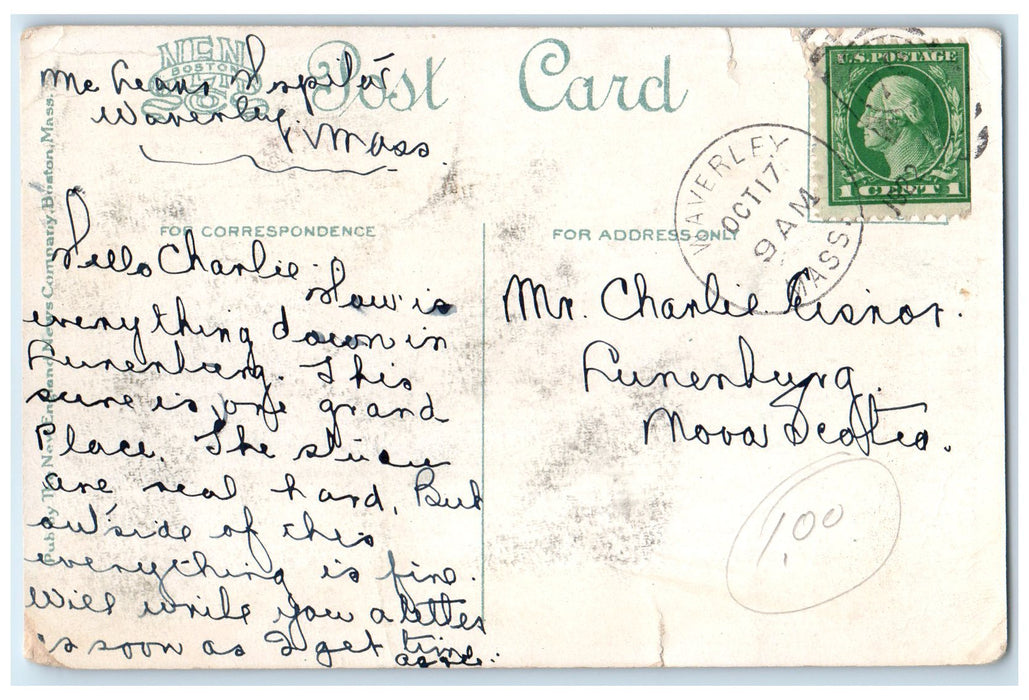 NEN
BOSTON
Post Card
Mc Leans Hospital
Waverley,
Mass.
U.S. POSTAGE
1 CENT 1
WAVERLEY
OCT 17
9 AM
MASS.
FOR CORRESPONDENCE
FOR ADDRESS ONLY
Hello Charlie
How is
everything down in
Lunenburg. This
sure is one grand
Place. The
are real hard, But
outside of this
everything is fine.
Will write you a letter
as soon as I get time
Mr. Charlie Eisnor.
Lunenburg.
Nova Scotia.
1.00
Pub. by The New England News Company, Boston, Mass.